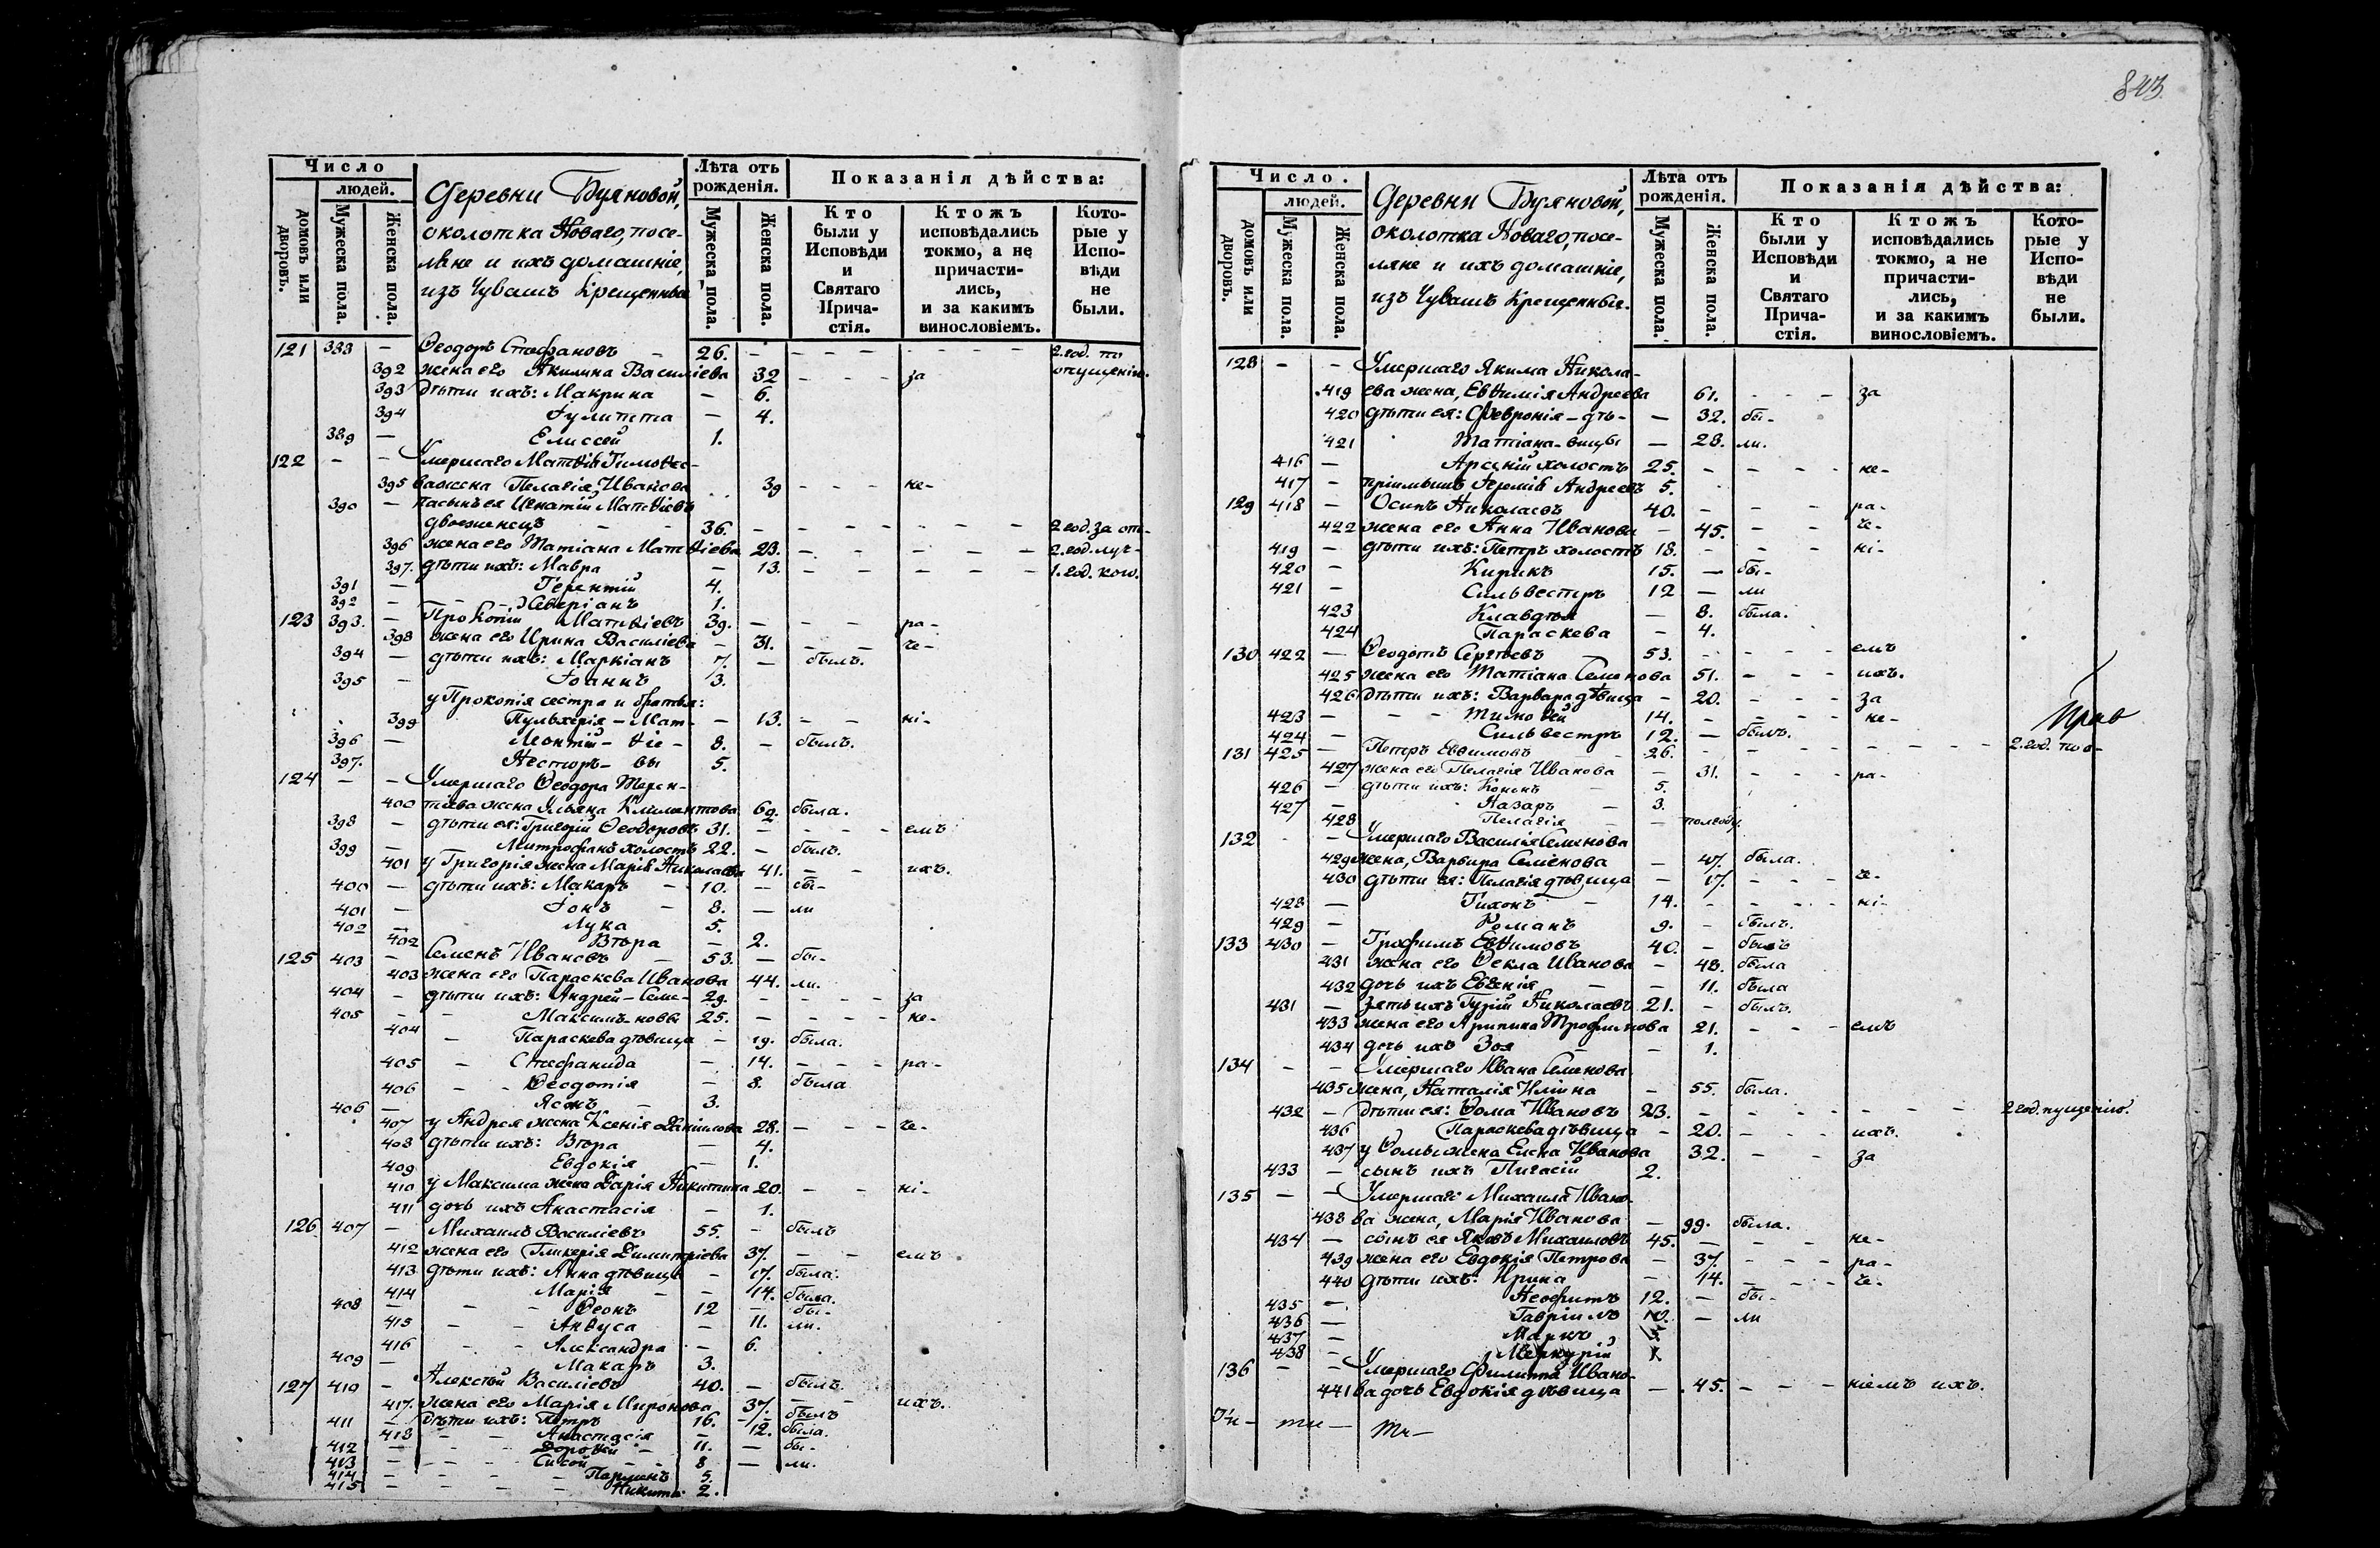 843.
Число
людей.
домовъ или дворовъ.
Мужеска пола.
Женска пола.
Деревни Буяновой,
околотка Новаго, посе-
ляне и ихъ домашніе,
изъ Чувашъ Крещенные
Лѣта отъ рожденія.
Мужеска пола.
Женска пола.
Показанія дѣйства:
Кто были у Исповѣди и Святаго Прича-стія.
Ктожъ исповѣдались токмо, а не причасти-лись, и за какимъ винословіемъ.
Кото-рые у Испо-вѣди не были.
121 388 — Ѳеодоръ Стефановъ — 26. — — — — 2. год. по
392 жена его Акилина Василіева 32 — — — за опущенію.
393 дѣти ихъ: Макрина — 6.
394 Іулитта — 4.
389 — Елиссей 1.
122 — — Умершаго Матѳія Тимоѳее-
395 ва жена Пелагія Иванова 39 — — — не-
390 — пасынъ ея Игнатій Матѳіевъ
двоеженецъ — — 36. — — — — 2 год. за от-
396 жена его Татіана Матѳіева 23. — — — — 2. год. луч-
397. дѣти ихъ: Мавра — 13. — — — — 1. год. кою.
391 — Терентій 4.
392 — — — Северіанъ 1.
123 393. — Прокопій Матѳіевъ 39. — — — ра-
398 жена его Ирина Василіева — 31. — — че-
394 — дѣти ихъ: Маркіанъ 7. — былъ.
395 — Іоаннъ 3.
у Прокопія сестра и братья:
399 Пульхерія — Мат- — 13. — — ні-
396 — Леонтій — ѳіе- 8. — былъ.
397. Несторъ — вы 5.
124 — — Умершаго Ѳеодора Терен-
400 тіева жена Ульяна Климентова 69. была.
398 — дѣти ея: Григорій Ѳеодоровъ 31. — — — емъ
399 — Митрофанъ холостъ 22. — былъ.
401 у Григорія жена Марія Николаева 41. — — ихъ.
400 — дѣти ихъ: Макаръ — 10. — бы-
401 — Іонъ — 8. — ли
402 — Лука 5.
402 Вѣра — 2.
125 403 — Семенъ Ивановъ — 53. — бы-
403 жена его Параскева Иванова 44. ли.
404 — дѣти ихъ: Андрей — Семе- 29. — — — за
405 — — Максимъ — новы 25. — — — не-
404 — Параскева дѣвица — 19. была.
405 — Стефанида — 14. — — — ра-
406 — — Ѳеодотія — 8. была
406 — Ясонъ — 3.
407 у Андрея жена Ксенія Даніилова 28. — — — че-
408 дѣти ихъ: Вѣра — 4.
409 Евдокія — 1.
410 у Максима жена Дарія Никитина 20. — — ні-
411 дочь ихъ Анастасія — 1.
126 407 — Михаилъ Василіевъ 55. — былъ
412 жена его Гликерія Димитріева 37. — — емъ
413 дѣти ихъ: Анна дѣвица — 17. была.
414 Марія — — 14. была.
408 — — — Ѳеонъ 12 — бы-
415 — — Анѳуса — 11. ли.
416 — — Александра — 6.
409 — Макаръ 3.
127 410 — Алексѣй Василіевъ 40. — былъ.
417. жена его Марія Миронова 37. — — ихъ.
411 — дѣти ихъ: Петръ 16. — былъ
418 — — Анастасія — 12. была.
412 — — Дороѳей — 11. — бы-
413 — — — Сисой — 8 — ли.
414 — — — — Парменъ 5.
415 — — — — Никита 2.
Число.
людей.
домовъ или дворовъ.
Мужеска пола.
Женска пола.
Деревни Буяновой,
околотка Новаго, посе-
ляне и ихъ домашніе,
изъ Чувашъ Крещенные.
Лѣта отъ рожденія.
Мужеска пола.
Женска пола.
Показанія дѣйства:
Кто были у Исповѣди и Святаго Прича-стія.
Ктожъ исповѣдались токмо, а не причасти-лись, и за какимъ винословіемъ.
Кото-рые у Испо-вѣди не были.
128 — — Умершаго Якима Никола-
419 ева жена, Евѳимія Андреева 61. — — — за
420 дѣти ея: Февронія — дѣ- — 32. бы-
421 Татіана — вицы — 28. ли.
416 — Арсеній холостъ 25. — — — не-
417 — пріимышъ Іеремій Андреевъ 5.
129 418 — Осипъ Николаевъ 40. — — — ра-
422 жена его Анна Иванова — 45. — — че-
419 — дѣти ихъ: Петръ холостъ 18. — — — ні-
420 — Кирикъ 15. — бы-
421 — Сильвестръ 12 — ли
423 Клавдѣя — 8. была.
424 Параскева — 4.
130 422 — Ѳеодотъ Сергѣевъ — 53. — — — емъ
425 жена его Татіана Семенова 51. — — — ихъ.
426 дѣти ихъ: Варвара дѣвица — 20. — — — за
423 — — — Тимоѳей 14. — — — не-
424 — Сильвестръ 12. — былъ.
131 425 — Петръ Евѳимовъ — 26. — — — — 2. год. по о-
427 жена его Пелагія Иванова — 31. — — — ра-
426 — дѣти ихъ: Кононъ — 5.
427 — Назаръ — 3.
428 Пелагія — — полгоду.
132 — — Умершаго Василія Семенова
429 жена, Варвара Семенова — 47. была.
430 дѣти ея: Пелагія дѣвица — 17. — — — че-
428 — Тихонъ — 14. — — — ні-
429 — Романъ 9. — былъ.
133 430 — Трофимъ Евѳимовъ 40. — былъ
431 жена его Ѳекла Иванова — 48. была
432 дочь ихъ Евгенія — — 11. была
431 — зять ихъ Гурій Николаевъ 21. — былъ.
433 жена его Арипина Трофимова 21. — — — емъ
434 дочь ихъ Зоя — — 1.
134 — — Умершаго Ивана Семенова
435 жена, Наталія Ильина — 55. была.
432 — дѣти ея: Ѳома Ивановъ 23. — — — — 2 год. пущенію.
436 Параскева дѣвица — 20. — — — ихъ.
437 у Ѳомы жена Елена Иванова 32. — — за
433 — сынъ ихъ Пигасій 2.
135 — — Умершаго Михаила Ивано-
438 ва жена, Марія Иванова — 99. была.
434 — сынъ ея Яковъ Михаиловъ 45. — — — не-
439 жена его Евдокія Петрова — 37. — — — ра-
440 дѣти ихъ: Ирина — 14. — — — че-
435 — Неофитъ 12. — бы-
436 — Гавріилъ 10. — ли
437 — Маркъ 5.
438 — Меркурій 1.
136 — — Умершаго Филиппа Ивано-
441 ва дочь Евдокія дѣвица — 45. — — — ніемъ ихъ.